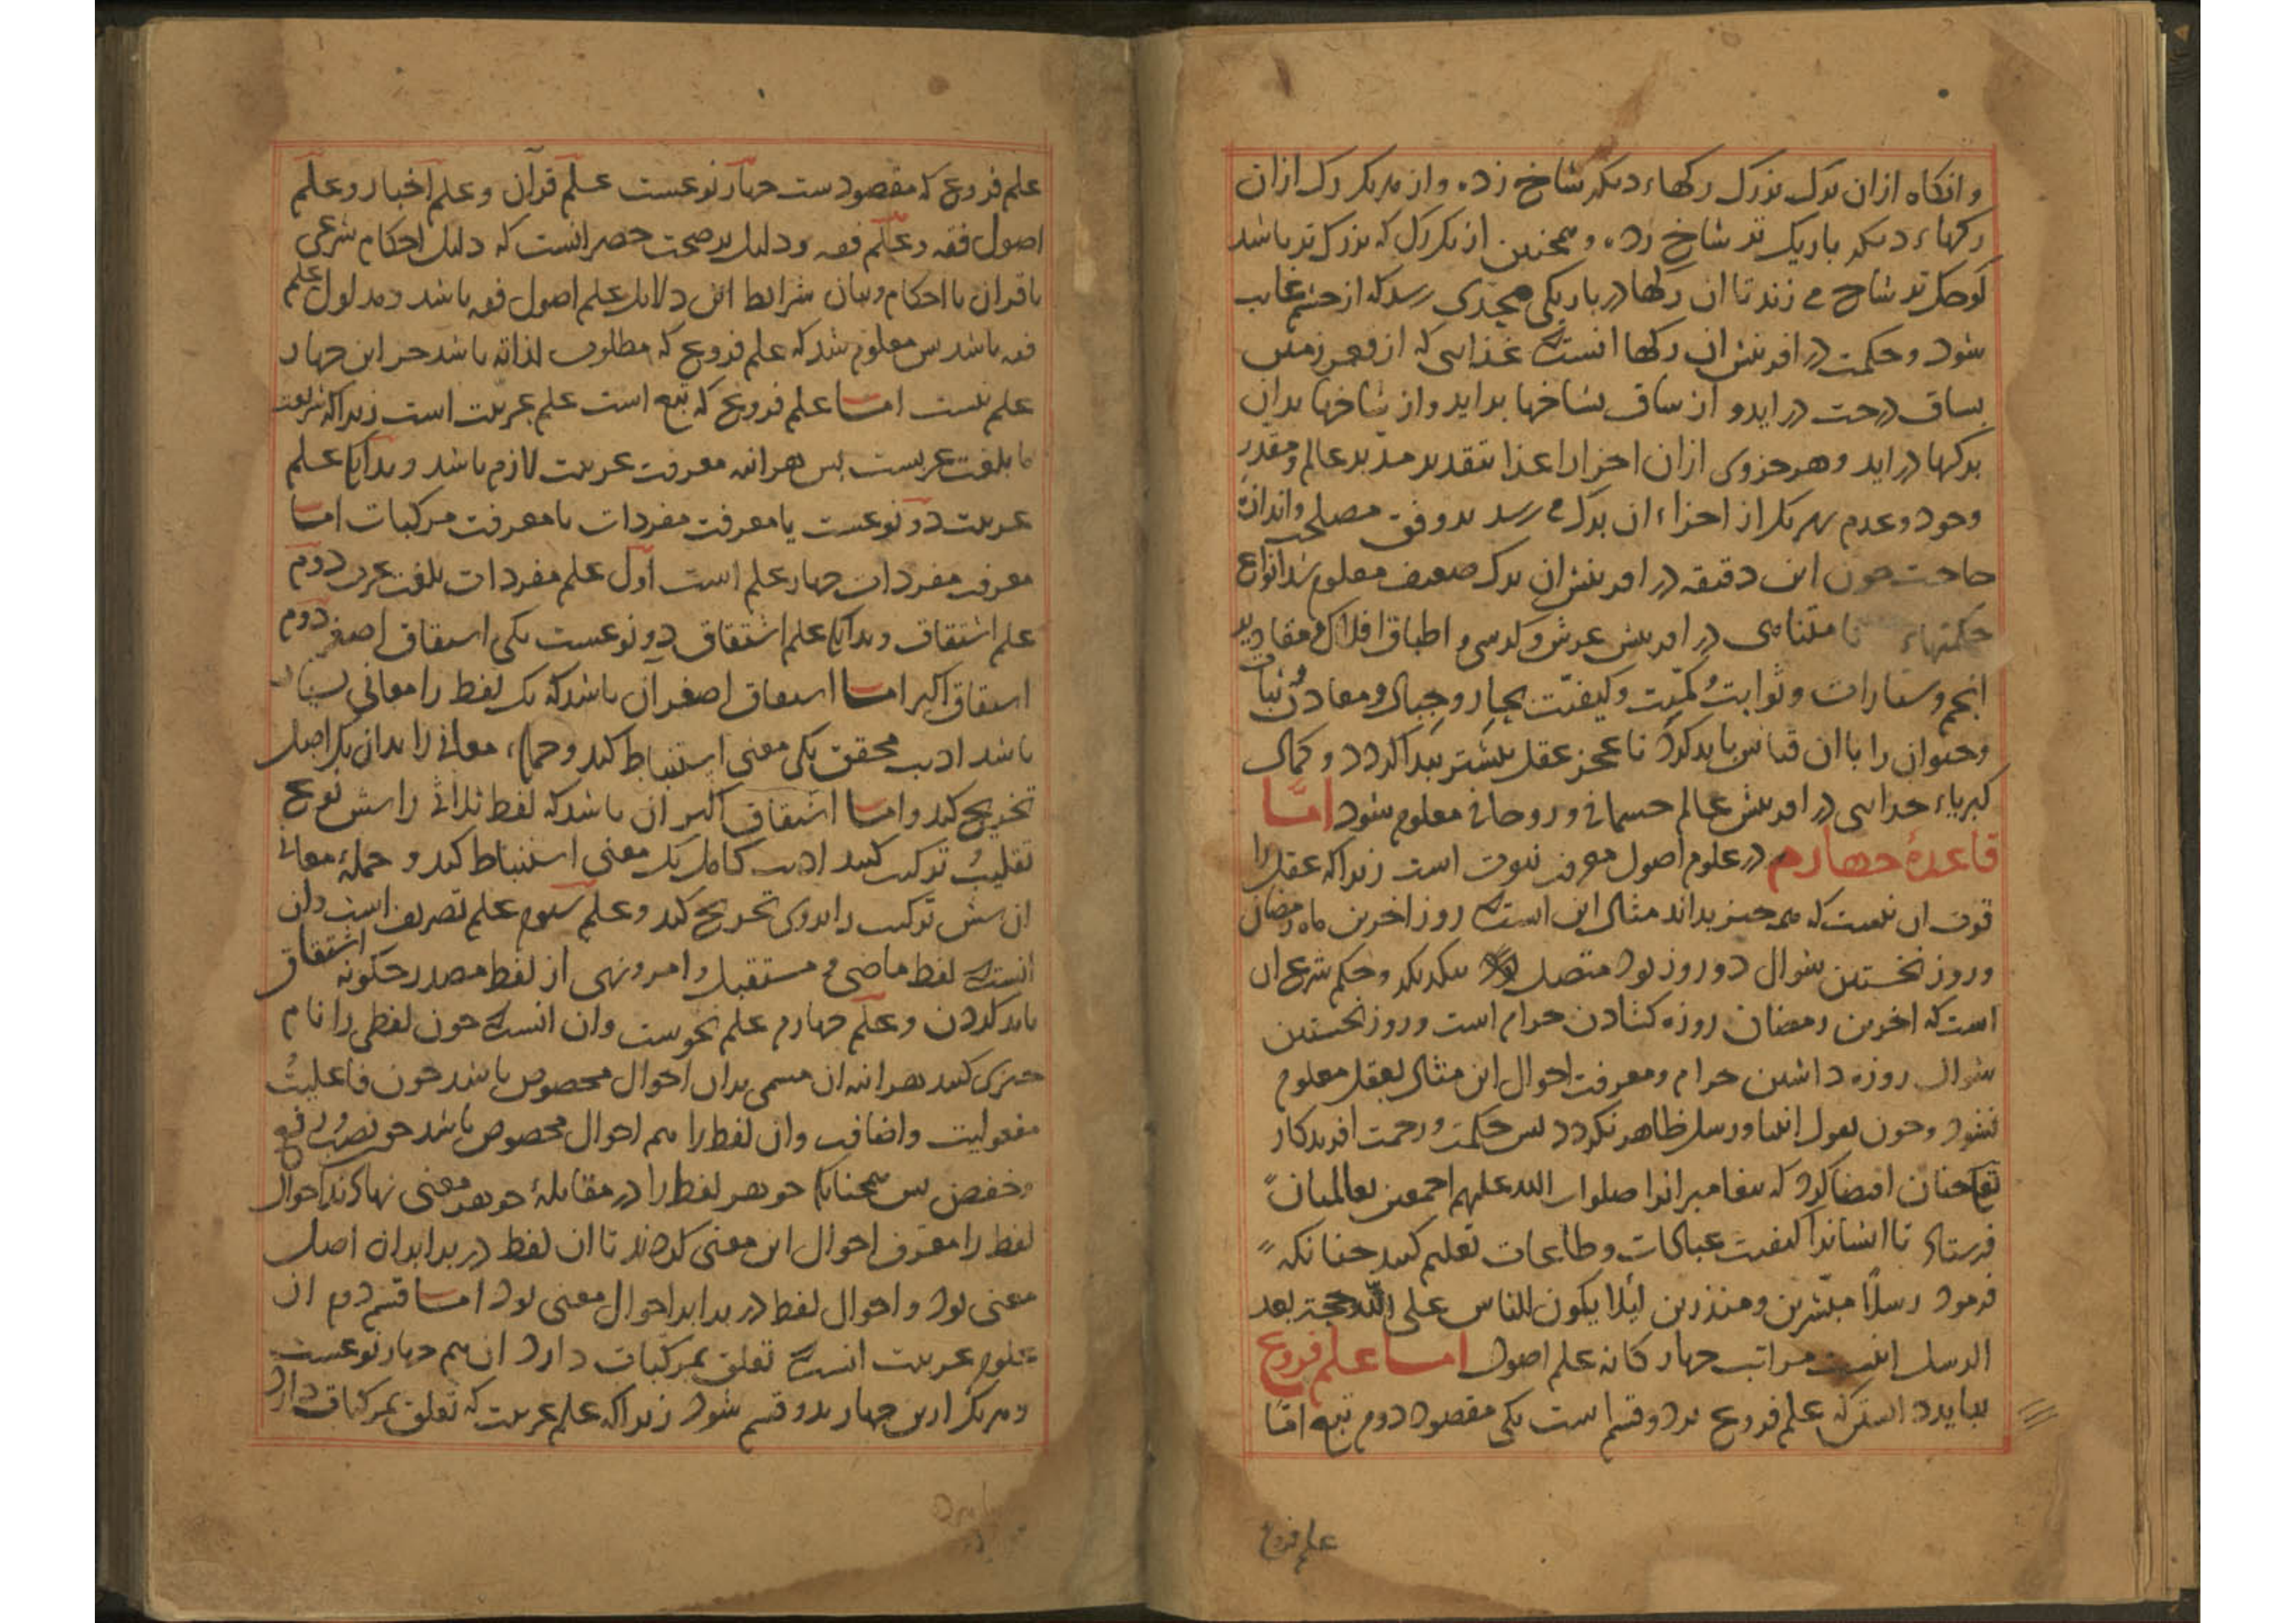 وانکاه ازان برک بزرک رکهاء دیکر شاخ زده و از هریک رک ازان
رکهاء دیکر باریک تر شاخ زده و همجنین از یک رک که بزرک تر باشد
کوجک تر شاخ می زند تا ان رکها در باریکی بحدی رسد که از جشم غایب
شود و حکمت در افرینش ان رکها انست که غذایی که از قعر زمین
بساق درخت در اید و از ساق بشاخها براید و از شاخها بدان
برکها در اید و هر جزوی ازان اجزاء غذا بتقدیر مدبر عالم و مقدر
وجود و عدم بهر یک از اجزاء ان برک می رسد بر وفق مصلحت و اندازه
حاجت جون این دقیقه در افرینش ان برک ضعیف معلوم شد انواع
حکمتهاء نامتناهی در افرینش عرش و کرسی و اطباق افلاک و مقادیر
انجم و سیارات و ثوابت و کمیت و کیفیت بحار و جبال و معادن و نبات
و حیوان را با ان قیاس باید کرد تا عجز عقل بیشتر بیدا کردد و کمال
کبریاء خدایی در افرینش عالم جسمانی و روحانی معلوم شود اما
قاعدهٔ جهارم در علوم اصول معرفت نبوت است زیرا که عقل را
قوت ان نیست که همه جیز بداند مثال این انست که روز اخرین ماه رمضان
و روز نخستین شوال دو روز بود متصل بیکدیکر و حکم شرع ان
است که اخرین رمضان روزه کشادن حرام است و روز نخستین
شوال روزه داشتن حرام و معرفت احوال این مثال بعقل معلوم
نشود و جون بقول انبیا و رسل ظاهر نکردد بس حکمت و رحمت افریدکار
تع جنان اقتضا کرد که بیغامبرانرا صلوات الله علیهم اجمعین بعالمیان
فرستاد تا ایشانرا کیفیت عبادات و طاعات تعلیم کنند جنانکه
فرمود رسلا مبشرین و منذرین لیلا یکون للناس علی الله حجة بعد
الرسل اینست مراتب جهار کانه علم اصول اما علم فروع
بباید دانستن که علم فروع بر دو قسم است یکی مقصود دوم تبع اما
علم فروع
علم فروع که مقصودست جهار نوعست علم قرآن و علم اخبار و علم
اصول فقه و علم فقه و دلیل بر صحت حصر انست که دلیل احکام شرعی
یا قران یا احکام و بیان شرایط این دلایل علم اصول فقه باشد و مدلول علم
فقه باشد بس معلوم شد که علم فروع که مطلوب لذاته باشد جز این جهار
علم نیست اما علم فروع که تبع است علم عربیت است زیرا که شریعت
ما بلغت عربیست بس هراینه معرفت عربیت لازم باشد و بدانک علم
عربیت دو نوعست یا معرفت مفردات یا معرفت مرکبات اما
معرفت مفردات جهار علم است اول علم مفردات بلغت عرب دوم
علم اشتقاق و بدانک علم اشتقاق دو نوعست یکی اشتقاق اصغر دوم
اشتقاق اکبر اما اشتقاق اصغر آن باشد که یک لفظ را معانی بسیار
باشد ادیب محقق یکی معنی استنباط کند و جملهٔ معانی را بدان یک اصل
تخریج کند و اما اشتقاق اکبر ان باشد که لفظ ثلاثی را شش نوع
تقلیب ترکیب کنند ادیب کامل یک معنی استنباط کند و جملهٔ معانی
ان شش ترکیب را بروی تخریج کند و علم سوم علم تصریف است و ان
انست که لفظ ماضی و مستقبل و امر و نهی از لفظ مصدر جکونه اشتقاق
باید کردن و علم جهارم علم نحوست و ان انست که جون لفظی را نام
جیزی کنند هراینه ان مسمی بدان احوال مخصوص باشد جون فاعلیت
مفعولیت و اضافت و ان لفظ را هم احوال مخصوص باشد جو نصب و رفع
و خفض بس همجنانک جوهر لفظ را در مقابلهٔ جوهر معنی نهادند احوال
لفظ را معرف احوال این معنی کردند تا ان لفظ در برابر ان اصل
معنی بود و احوال لفظ در برابر احوال معنی بود اما قسم دوم از
علوم عربیت انست که تعلق بمرکبات دارد ان هم جهار نوعست
و هریک ازین جهار بدو قسم شود زیرا که علم عربیت که تعلق بمرکبات دارد